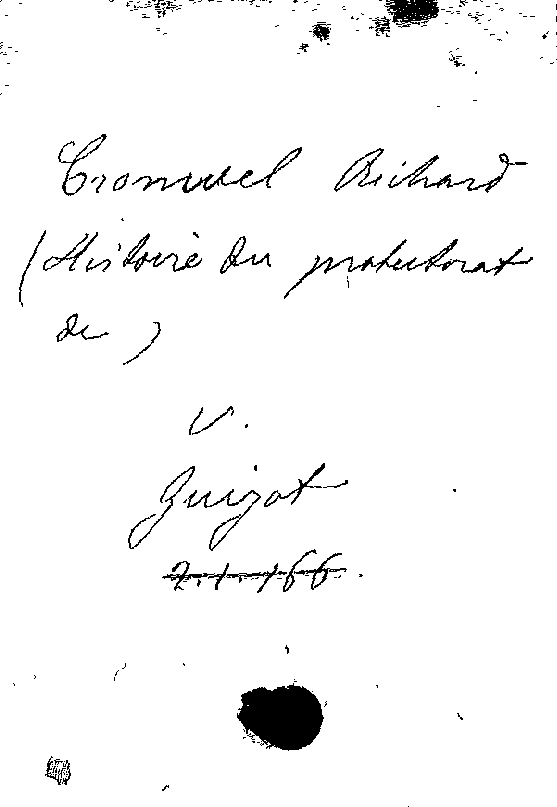 Cromwel Richard
(Histoire du protectorat
de )
V.
Guizot
2.1.166.